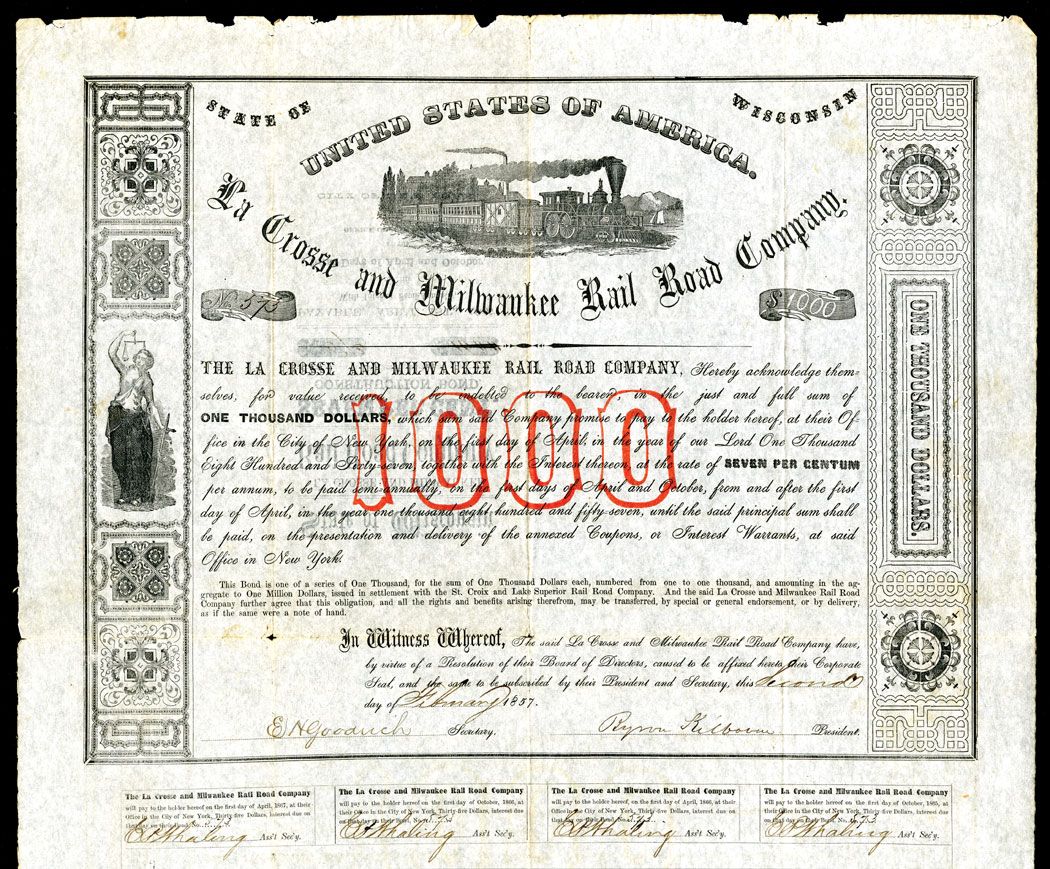 STATE OF
WISCONSIN
UNITED STATES OF AMERICA.
La Crosse and Milwaukee Rail Road Company.
No. 573
$1000
THE LA CROSSE AND MILWAUKEE RAIL ROAD COMPANY, Hereby acknowledge them-
selves, for value received, to be indebted to the bearer, in the just and full sum of
ONE THOUSAND DOLLARS, which sum said Company promise to pay to the holder hereof, at their Of-
fice in the City of New York, on the first day of April, in the year of our Lord One Thousand
Eight Hundred and Sixty-seven, together with the Interest thereon, at the rate of SEVEN PER CENTUM
per annum, to be paid semi-annually, on the first days of April and October, from and after the first
day of April, in the year one thousand eight hundred and fifty-seven, until the said principal sum shall
be paid, on the presentation and delivery of the annexed Coupons, or Interest Warrants, at said
Office in New York.
1000
ONE THOUSAND DOLLARS.
This Bond is one of a series of One Thousand, for the sum of One Thousand Dollars each, numbered from one to one thousand, and amounting in the ag-
gregate to One Million Dollars, issued in settlement with the St. Croix and Lake Superior Rail Road Company. And the said La Crosse and Milwaukee Rail Road
Company further agree that this obligation, and all the rights and benefits arising therefrom, may be transferred, by special or general endorsement, or by delivery,
as if the same were a note of hand.
In Witness Whereof, The said La Crosse and Milwaukee Rail Road Company have,
by virtue of a Resolution of their Board of Directors, caused to be affixed hereto their Corporate
Seal, and the same to be subscribed by their President and Secretary, this Second
day of February 1857.
E H Goodrich Secretary.
Byron Kilbourn President.
The La Crosse and Milwaukee Rail Road Company
will pay to the holder hereof on the first day of April, 1867, at their
Office in the City of New York, Thirty-five Dollars, interest due on
that day on their Bond, No. 573
Whaling Ass't Sec'y.
The La Crosse and Milwaukee Rail Road Company
will pay to the holder hereof, on the first day of October, 1866, at
their Office in the City of New York, Thirty-five Dollars, interest due
on that day on their Bond, No. 573
Whaling Ass't Sec'y.
The La Crosse and Milwaukee Rail Road Company
will pay to the holder hereof, on the first day of April, 1866, at
their Office in the City of New York, Thirty-five Dollars, interest due
on that day on their Bond, No. 573
Whaling Ass't Sec'y.
The La Crosse and Milwaukee Rail Road Company
will pay to the holder hereof, on the first day of October, 1865, at
their Office in the City of New York, Thirty-five Dollars, interest due
on that day on their Bond, No. 573
Whaling Ass't Sec'y.